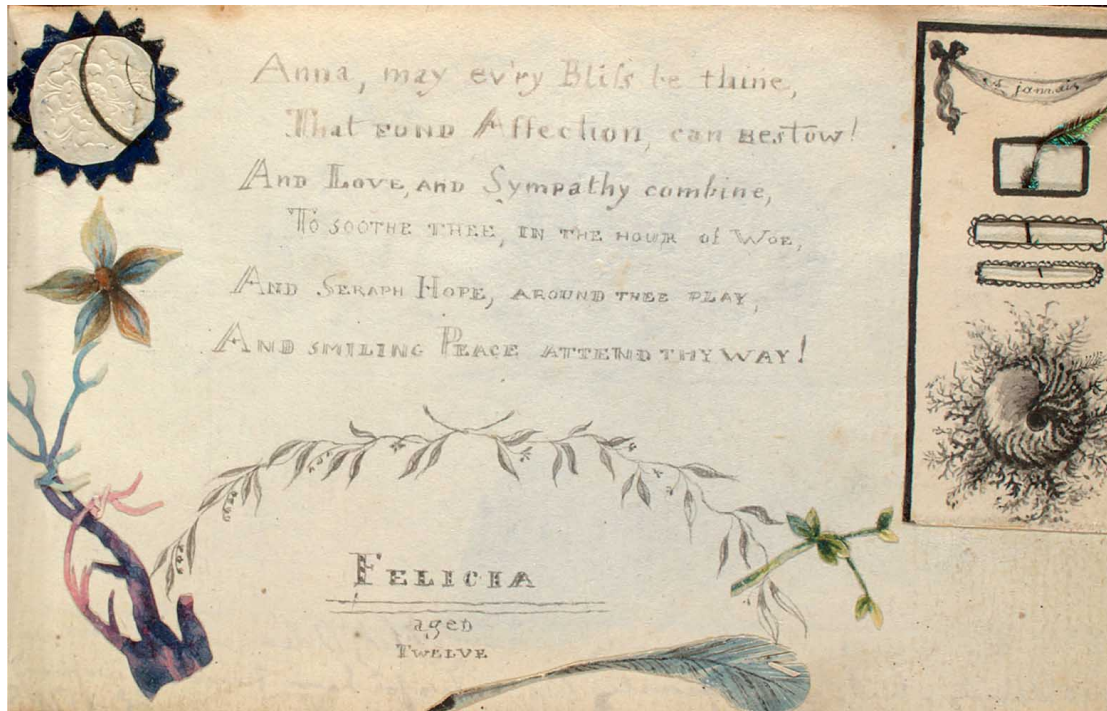 Anna, may ev'ry Bliſs be thine,
That FOND Affection, can BESTOW!
AND LOVE, AND Sympathy combine,
TO SOOTHE THEE, IN THE HOUR of WOE,
AND SERAPH HOPE, AROUND THEE PLAY,
AND SMILING PEACE ATTEND THY WAY!
FELICIA
aged
TWELVE
jammais